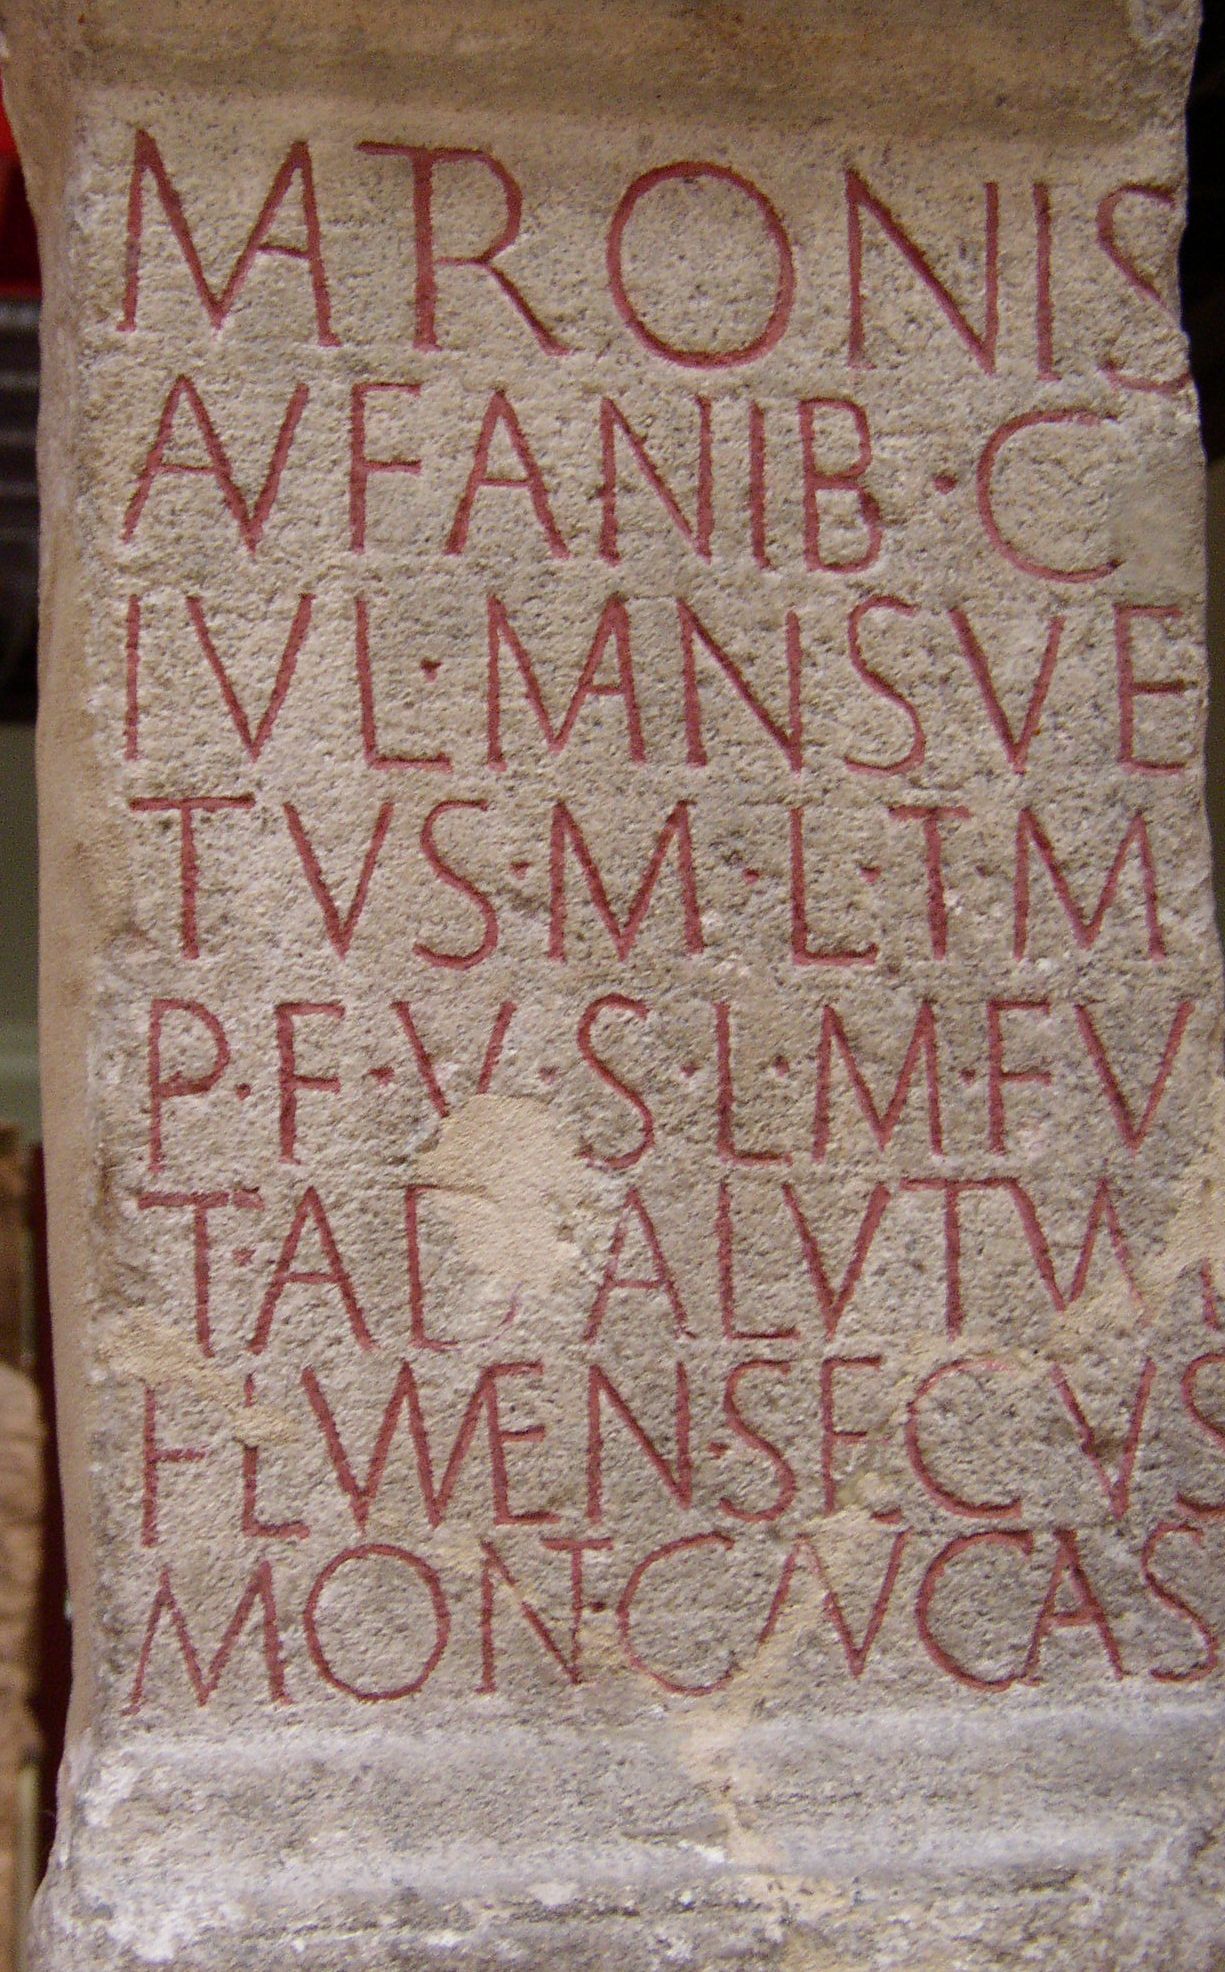 MATRONIS
AVFANIB · C
IVL · MANSVE
TVS · M · L · T · M
P · F · V · S · L · M · FV
T · AD ALVTVM
FLVMEN · SECVS
MONT · CAVCASI